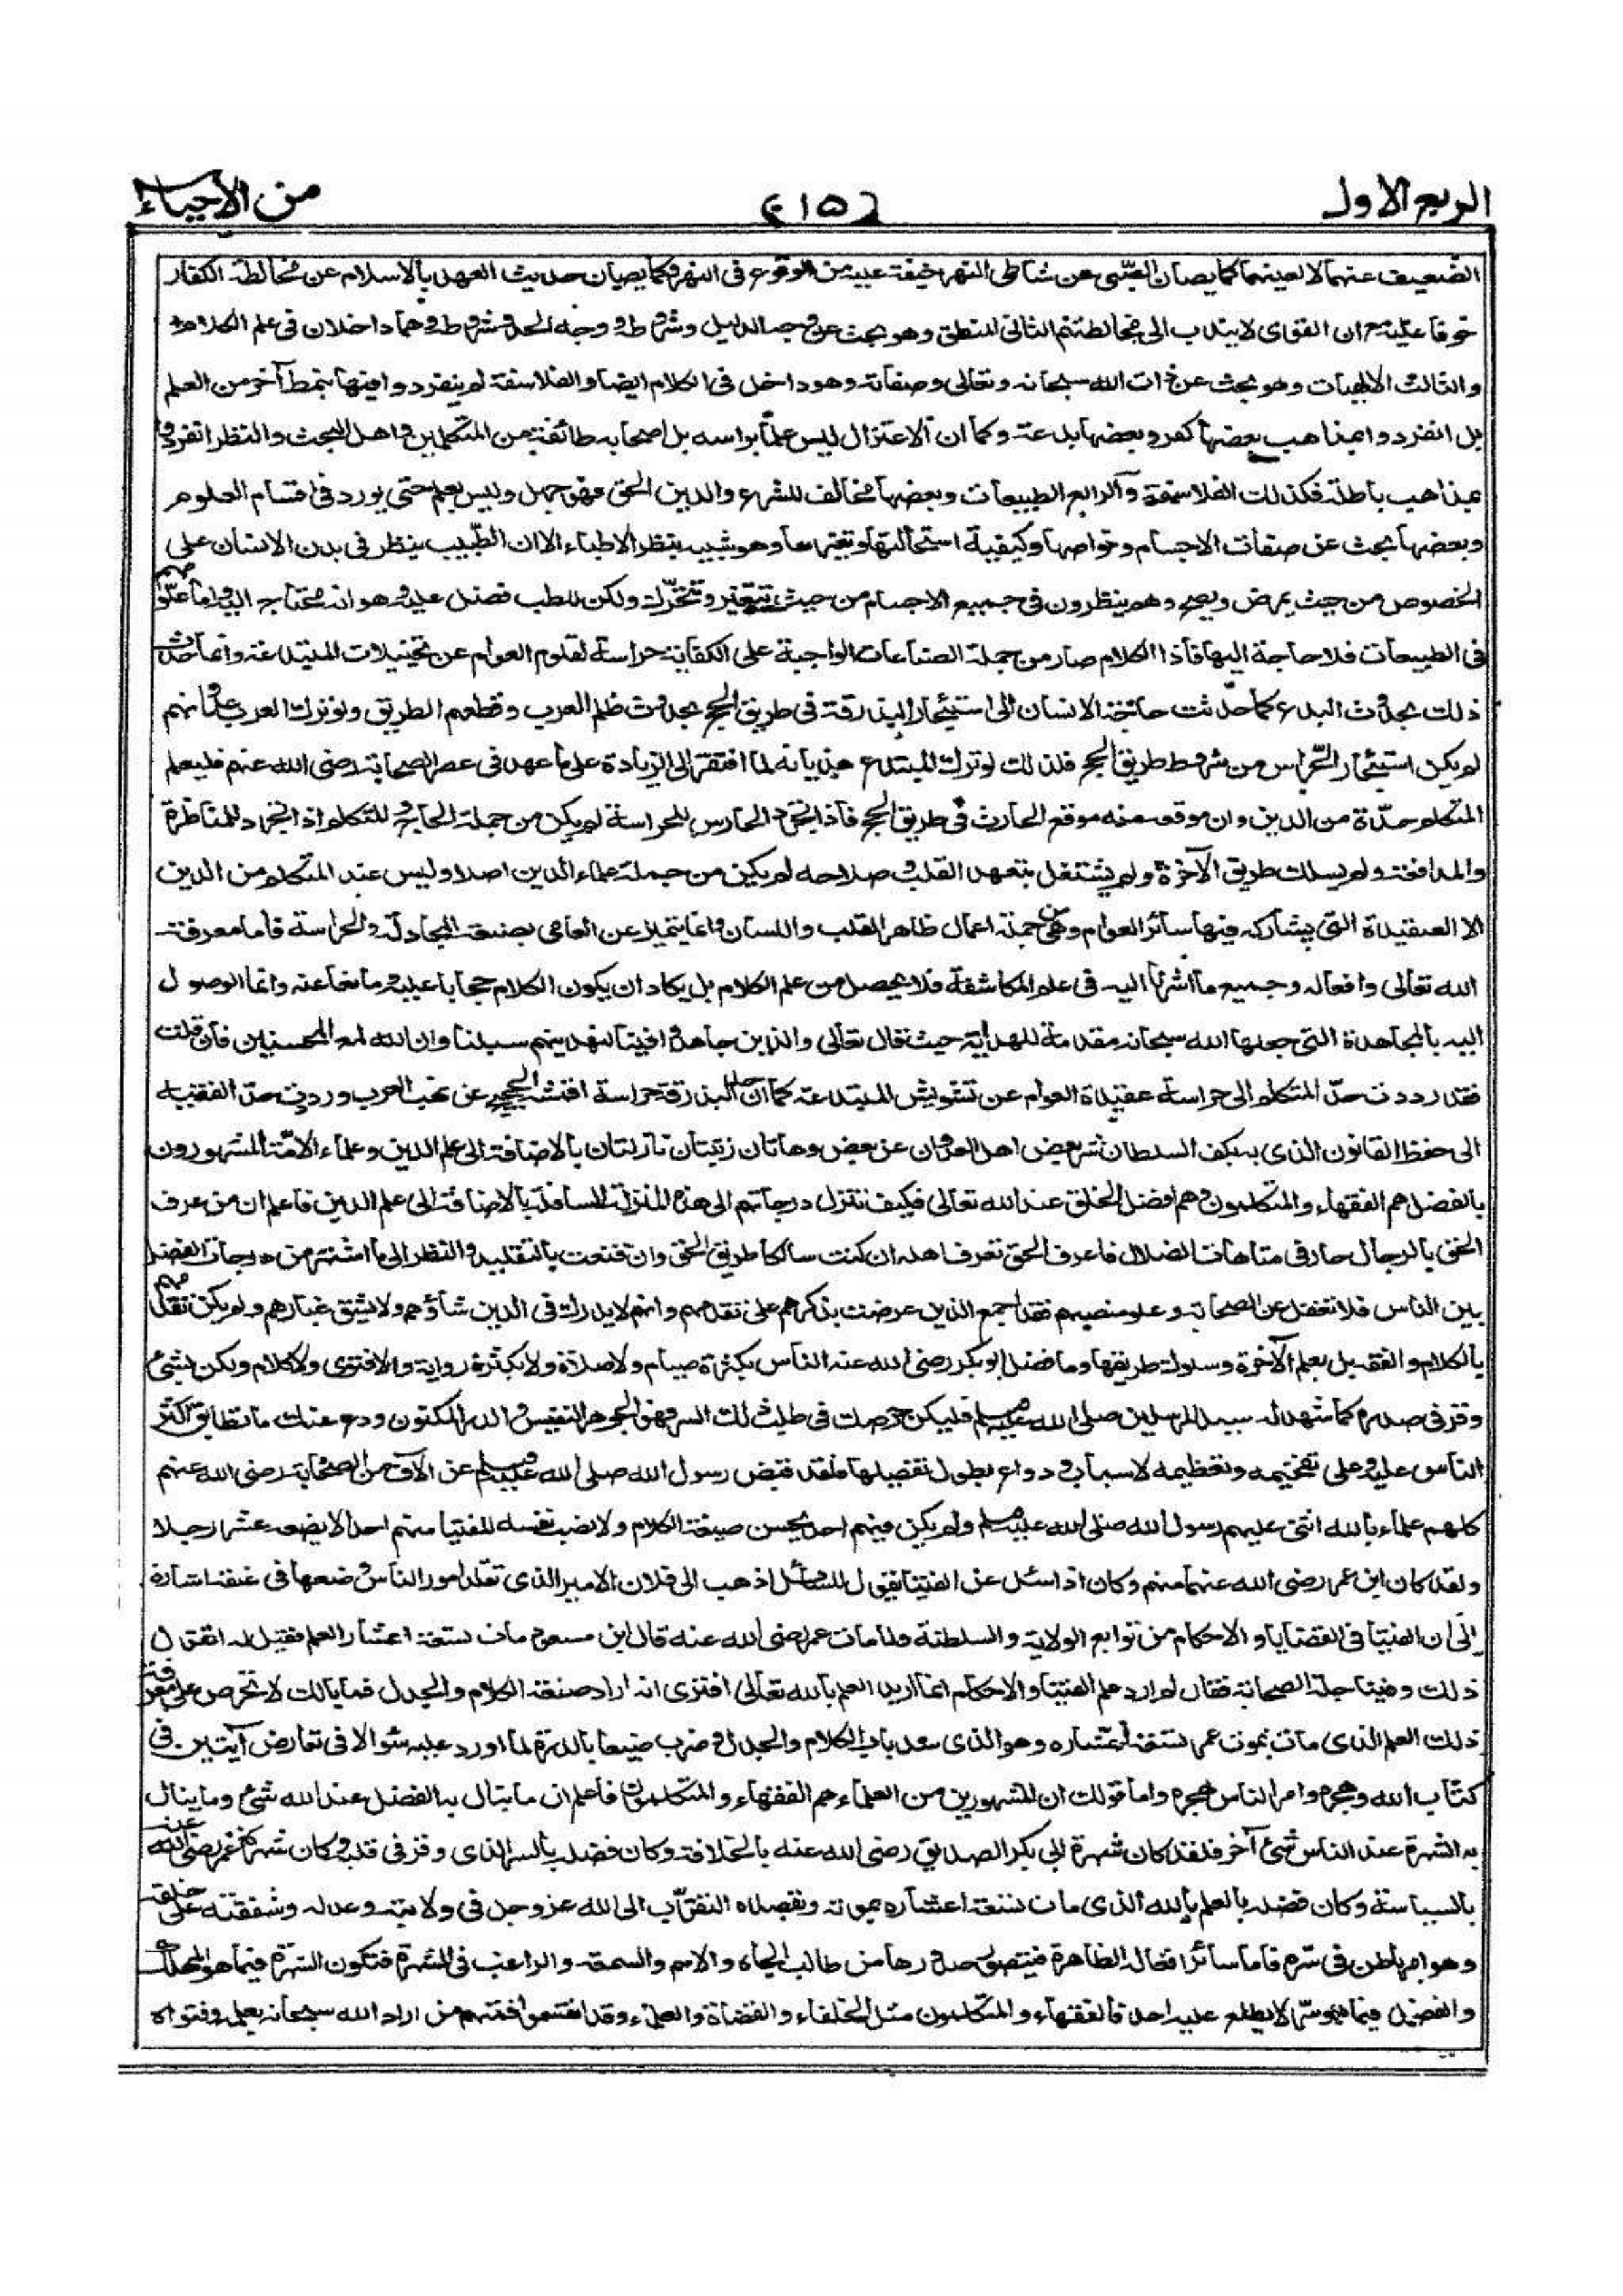 الربع الاول
(١٥)
من الاحياء
الضعيف عنهما لا لعينهما كما يصان الصبى عن شاطى النهر خيفة عليه من الوقوع فى النهر وكما يصان حديث العهد بالاسلام عن مخالطة الكفار
خوفا عليه مع ان القوى لا يندب الى مخالطتهم الثانى المنطق وهو بحث عن وجه الدليل وشروطه ووجه الحد وشروطه وهما داخلان فى علم الكلام
والثالث الالهيات وهو بحث عن ذات الله سبحانه وتعالى وصفاته وهو داخل فى الكلام ايضا والفلاسفة لم ينفردوا فيها بنمط آخر من العلم
بل انفردوا بمذاهب بعضها كفر وبعضها بدعة وكما ان الاعتزال ليس علما براسه بل اصحابه طائفة من المتكلمين واهل البحث والنظر انفردوا
بمذاهب باطلة فكذلك الفلاسفة والرابع الطبيعات وبعضها مخالف للشرع والدين الحق فهو جهل وليس بعلم حتى يورد فى اقسام العلوم
وبعضها بحث عن صفات الاجسام وخواصها وكيفية استحالتها وتغيرها وهو شبيه بنظر الاطباء الا ان الطبيب ينظر فى بدن الانسان على
الخصوص من حيث يمرض ويصح وهم ينظرون فى جميع الاجسام من حيث تتغير وتتحرك ولكن للطب فضل عليه وهو انه محتاج اليه واما علومهم
فى الطبيعات فلا حاجة اليها فاذا الكلام صار من جملة الصناعات الواجبة على الكفاية حراسة لقلوم العوام عن تخييلات المبتدعة وانما حدث
ذلك بحدوث البدع كما حدثت حاجة الانسان الى استيئجار البدرقة فى طريق الحج بحدوث ظلم العرب وقطعهم الطريق ولو ترك العرب عدوانهم
لم يكن استيئجار الحراس من شروط طريق الحج فلذلك لو ترك المبتدع هذيانه لما افتقر الى الزيادة على ما عهد فى عصر الصحابة رضى الله عنهم فليعلم
المتكلم حده من الدين وان موقعه منه موقع الحارث فى طريق الحج فاذا تجرد الحارس للحراسة لم يكن من جملة الحاج والمتكلم اذا تجرد للمناظرة
والمدافعة ولم يسلك طريق الآخرة ولم يشتغل بتعهد القلب وصلاحه لم يكن من جملة علماء الدين اصلا وليس عند المتكلم من الدين
الا العقيدة التى يشاركه فيها سائر العوام وهى من جملة اعمال ظاهر القلب واللسان وانما يتميز عن العامى بصنعة المجادلة والحراسة فاما معرفة
الله تعالى وافعاله وجميع ما اشرنا اليه فى علم المكاشفة فلا يحصل من علم الكلام بل يكاد ان يكون الكلام حجابا عليه ومانعا عنه وانما الوصول
اليه بالمجاهدة التى جعلها الله سبحانه مقدمة للهداية حيث قال تعالى والذين جاهدوا فينا لنهدينهم سبلنا وان الله لمع المحسنين فان قلت
فقد رددت حد المتكلم الى حراسة عقيدة العوام عن تشويش المبتدعة كما ان حد البذرقة حراسة اقمشة الحجيج عن نهب العرب ورددت حد الفقيه
الى حفظ القانون الذى به يكف السلطان شر بعض اهل العدوان عن بعض وهاتان رتبتان نازلتان بالاضافة الى علم الدين وعلماء الامة المشهورون
بالفضل هم الفقهاء والمتكلمون وهم افضل الخلق عند الله تعالى فكيف تنزل درجاتهم الى هذه المنزلة السافلة بالاضافة الى علم الدين فاعلم ان من عرف
الحق بالرجال حار فى متاهات الضلال فاعرف الحق تعرف اهله ان كنت سالكا طريق الحق وان قنعت بالتقليد والنظر الى ما اشتهر من درجات الفضل
بين الناس فلا تغفل عن الصحابة وعلو منصبهم فقد اجمع الذين عرضت بذكرهم على تقدمهم وانهم لا يدرك فى الدين شأوهم ولا يشق غبارهم ولم يكن تقدمهم
بالكلام والفقه بل بعلم الآخرة وسلوك طريقها وما فضل ابو بكر رضى الله عنه الناس بكثرة صيام ولا صلاة ولا بكثرة رواية ولا فتوى ولا كلام ولكن بشئ
وقر فى صدره كما شهد له سيد المرسلين صلى الله عليه وسلم فليكن حرصك فى طلب ذلك السر فهو الجوهر النفيس والدر المكنون ودع عنك ما تطابق اكثر
الناس عليه وعلى تفخيمه وتعظيمه لاسباب ودواع يطول تفصيلها فلقد قبض رسول الله صلى الله عليه وسلم عن الآف من الصحابة رضى الله عنهم
كلهم علماء بالله اثنى عليهم رسول الله صلى الله عليه وسلم ولم يكن فيهم احد يحسن صيغة الكلام ولا نصب نفسه للفتيا منهم احد الا بضعه عشر رجلا
ولقد كان ابن عمر رضى الله عنهما منهم وكان اذا سئل عن الفتيا يقول للسائل اذهب الى فلان الامير الذى تقلد امور الناس وضعها فى عنقه اشارة
الى ان الفتيا فى القضايا والاحكام من توابع الولاية والسلطنة ولما مات عمر رضى الله عنه قال ابن مسعود مات تسعة اعشار العلم فقيل له اتقول
ذلك وفينا جلة الصحابة فقال لم ارد علم الفتيا والاحكام انما اريد العلم بالله تعالى افترى انه اراد صنعة الكلام والجدل فما بالك لا تحرص على معرفة
ذلك العلم الذى مات بموت عمر تسعة اعشاره وهو الذى سد باب الكلام والجدل وضرب ضبيعا بالدرة لما اورد عليه سوالا فى تعارض آيتين فى
كتاب الله وهجره وامر الناس بهجره واما قولك ان المشهورين من العلماء هم الفقهاء والمتكلمون فاعلم ان ما ينال به الفضل عند الله شئ وما ينال
به الشهرة عند الناس شئ آخر فلقد كان شهرة ابى بكر الصديق رضى الله عنه بالخلافة وكان فضله بالسر الذى وقر فى قلبه وكان شهرة عمر رضى الله عنه
بالسياسة وكان فضله بالعلم بالله الذى مات تسعة اعشاره بموته وبقصده التقرب الى الله عز وجل فى ولايته وعدله وشفقته على خلقه
وهو امر باطن فى سره فاما سائر افعاله الظاهرة فيتصور صدورها من طالب الجاه والاسم والسمعة والراغب فى الشهرة فتكون الشهرة فيما هو المهلك
والفضل فيما هو سر لا يطلع عليه احد فالفقهاء والمتكلمون مثل الخلفاء والقضاة والعلماء وقد انقسموا فمنهم من اراد الله سبحانه بعلمه وفتواه